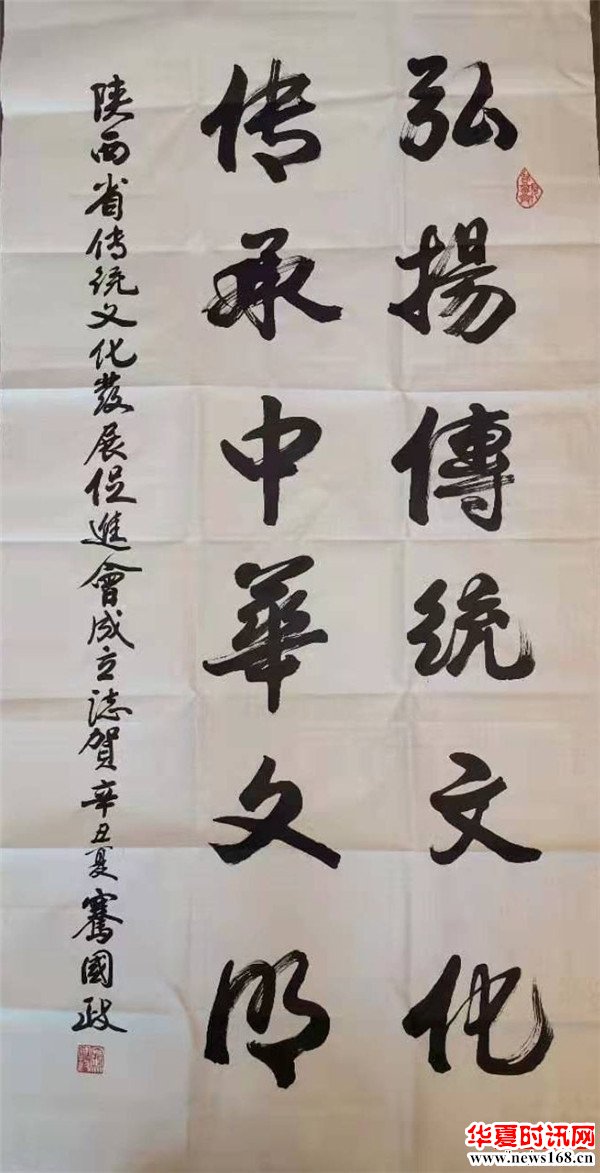 弘揚傳統文化
传承中華文明
陕西省传统文化發展促進會成立誌賀 辛丑夏 騫國政
华夏时讯网
www.news168.cn